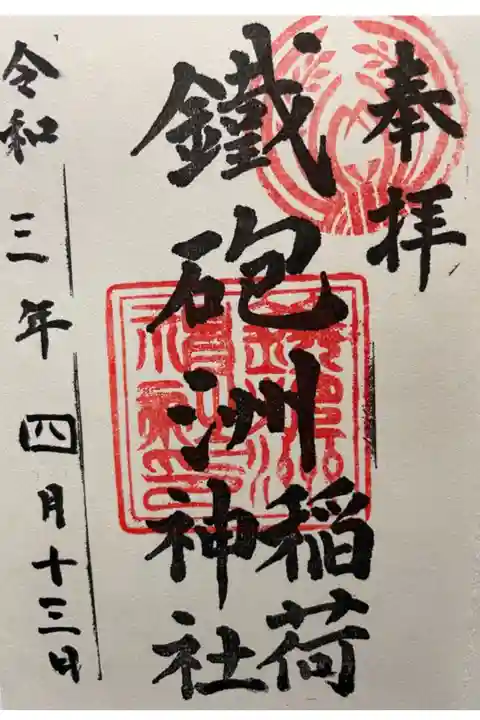 奉拝
鐵砲洲稲荷神社
令和三年四月十三日